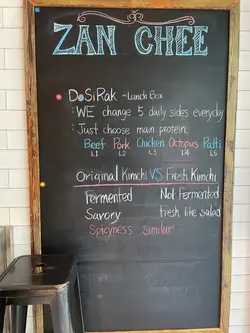 ZAN CHEE
DoSiRak - Lunch Box
: WE change 5 daily sides everyday
: Just choose main protein.
Beef Pork Chicken Octopus Patti
L1 L2 L3 L4 L5
Original Kimchi VS. Fresh Kimchi
Fermented Not Fermented
Savory fresh like salad
Spicyness Similar